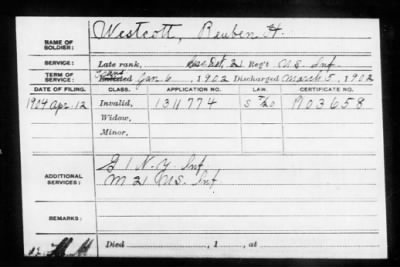 NAME OF SOLDIER: Westcott, Reuben H.
SERVICE: Late rank, Rec Det, 21 Reg't U.S. Inf
TERM OF SERVICE: Enlisted Jan. 6, 1902 Discharged March 5, 1902
DATE OF FILING. CLASS. APPLICATION NO. LAW. CERTIFICATE NO.
1904 Apr. 12 Invalid, 1311774 1103658
Widow,
Minor,
ADDITIONAL SERVICES: G 1 N.Y. Inf
M 21 U.S. Inf
REMARKS:
Died , 1 , at